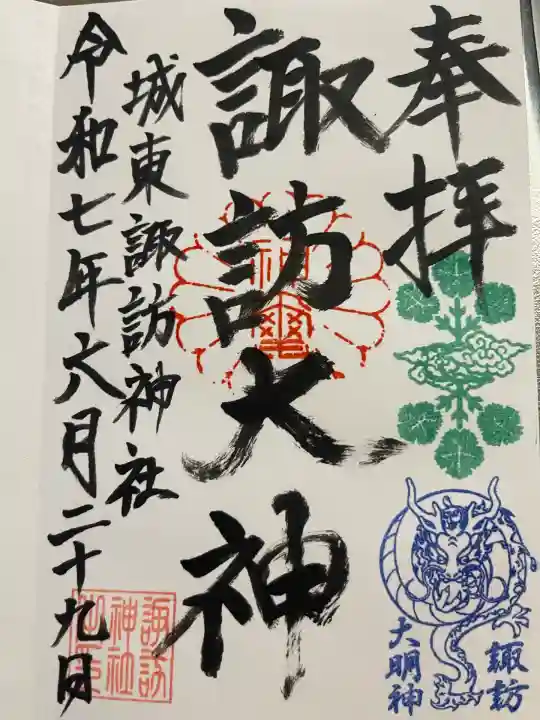 奉拝
諏訪大神
城東諏訪神社
令和七年六月二十九日
諏訪
大明神
諏訪
神社